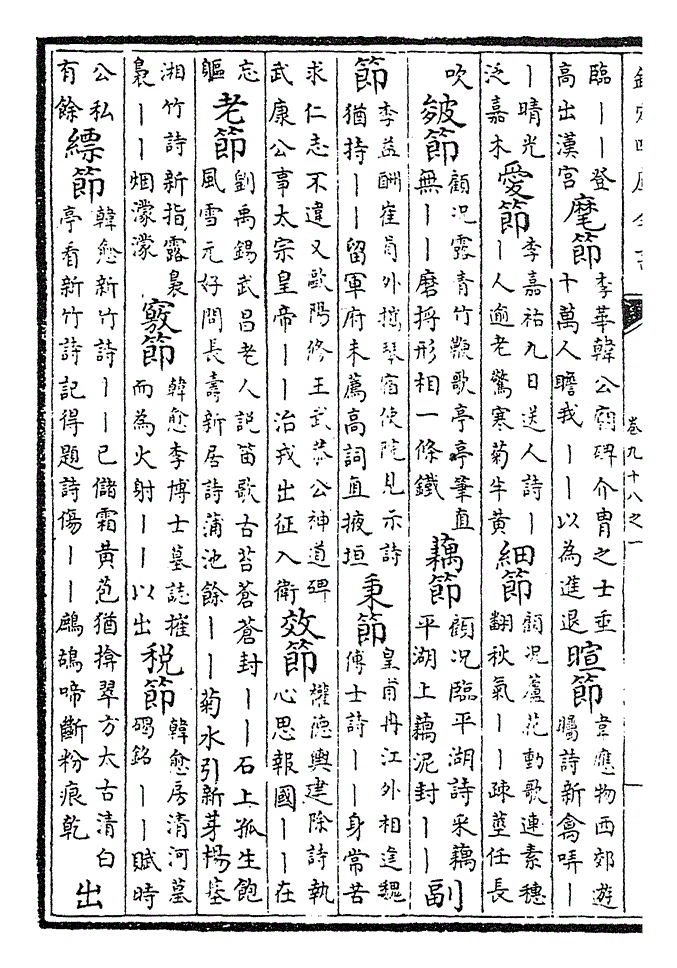 欽定四庫全書
卷九十八之一
臨丨丨登
高出漢宫
麾節
李華韓公廟碑介胄之士垂
十萬人瞻我丨丨以為進退
暄節
韋應物西郊遊
矚詩新禽哢丨
丨晴光
泛嘉木
愛節
李嘉祐九日送人詩丨
丨人逾老驚寒菊半黄
細節
顧况蘆花動歌連素穗
翻秋氣丨丨疎莖任長
吹
皴節
顧况露青竹鞭歌亭亭筆直
無丨丨磨捋形相一條鐵
藕節
顧况臨平湖詩采藕
平湖上藕泥封丨丨
副
節
李益酬崔員外攜琴宿使院見示詩
猶持丨丨留軍府未薦高詞直掖垣
秉節
皇甫冉江外相逢魏
傅士詩丨丨身常苦
求仁志不違又歐陽修王武恭公神道碑
武康公事太宗皇帝丨丨治戎出征入衛
效節
權德輿建除詩執
心思報國丨丨在
忘
軀
老節
劉禹錫武昌老人說笛歌古苔蒼蒼封丨丨石上孤生飽
風雪元好問長壽新居詩蒲池餘丨丨菊水引新芽楊基
湘竹詩新指露裊
裊丨丨烟濛濛
竅節
韓愈李博士墓誌摧
而為火射丨丨以出
税節
韓愈房清河墓
碣銘丨丨賦時
公私
有餘
縹節
韓愈新竹詩丨丨已儲霜黄苞猶揜翠方太古清白
亭看新竹詩記得題詩傷丨丨鷓鴣啼斷粉痕乾
出